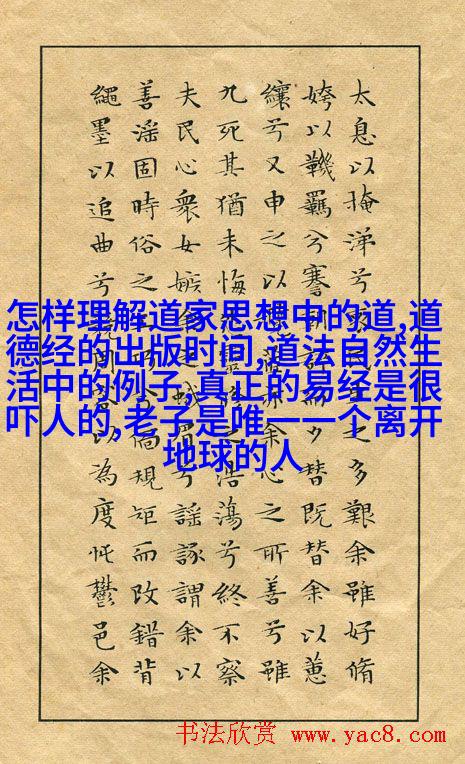 怎样理解道家思想中的道,道
德经的出版时间,道法自然生
活中的例子,真正的易经是很
吓人的,老子是唯一一个离开
地球的人
太息以掩涕兮之多艱余雖好脩
姱以鞿羈兮謇夕替既替余以蕙
纕兮又申之以余心之所善兮雖
九死其猶未悔之浩蕩兮終不察
夫民心衆女嫉兮謠諑謂余以
善淫固時俗之偭規矩而改錯背
繩墨以追曲兮以為度忳鬱邑余
书法欣赏 www.yac8.com